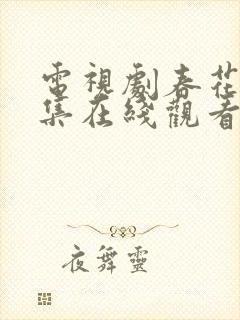 電視劇春花
集在綫觀看
夜舞靈